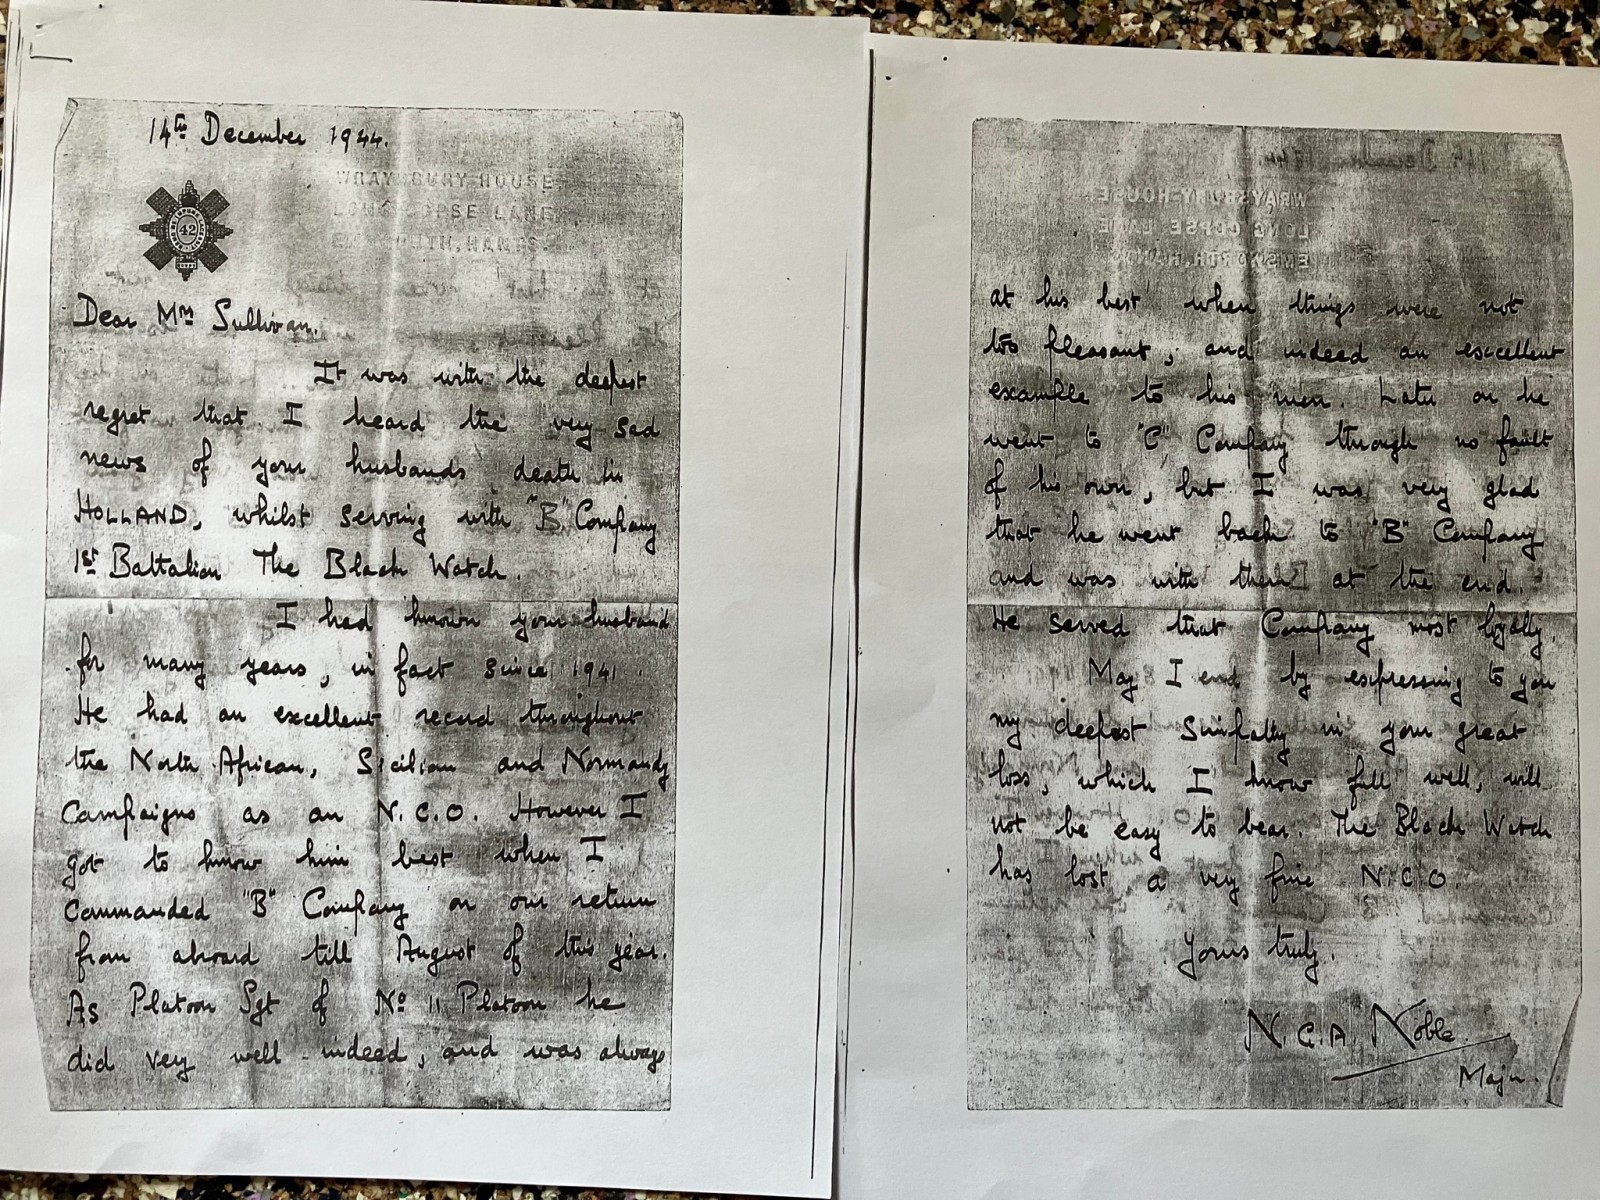 14th December 1944.
WRAYSBURY HOUSE
LONG COPSE LANE
EMSWORTH, HANTS.
42
Dear Mrs Sullivan,
It was with the deepest
regret that I heard the very sad
news of your husbands death in
HOLLAND, whilst serving with "B" Company
1st Battalion The Black Watch.
I had known your husband
for many years, in fact since 1941.
He had an excellent record throughout
the North African, Sicilian and Normandy
Campaigns as an N.C.O. However I
got to know him best when I
commanded "B" Company on our return
from abroad till August of this year.
As Platoon Sgt of No 11 Platoon he
did very well indeed, and was always
WRAYSBURY HOUSE
LONG COPSE LANE
EMSWORTH, HANTS.
at his best when things were not
too pleasant, and indeed an excellent
example to his men. Later on he
went to "C" Company through no fault
of his own, but I was very glad
that he went back to "B" Company
and was with them at the end.
He served that Company most loyally.
May I end by expressing to you
my deepest Simpathy in your great
loss, which I know full well, will
not be easy to bear. The Black Watch
has lost a very fine N.C.O.
Yours truly.
N.C.A. Noble.
Major.